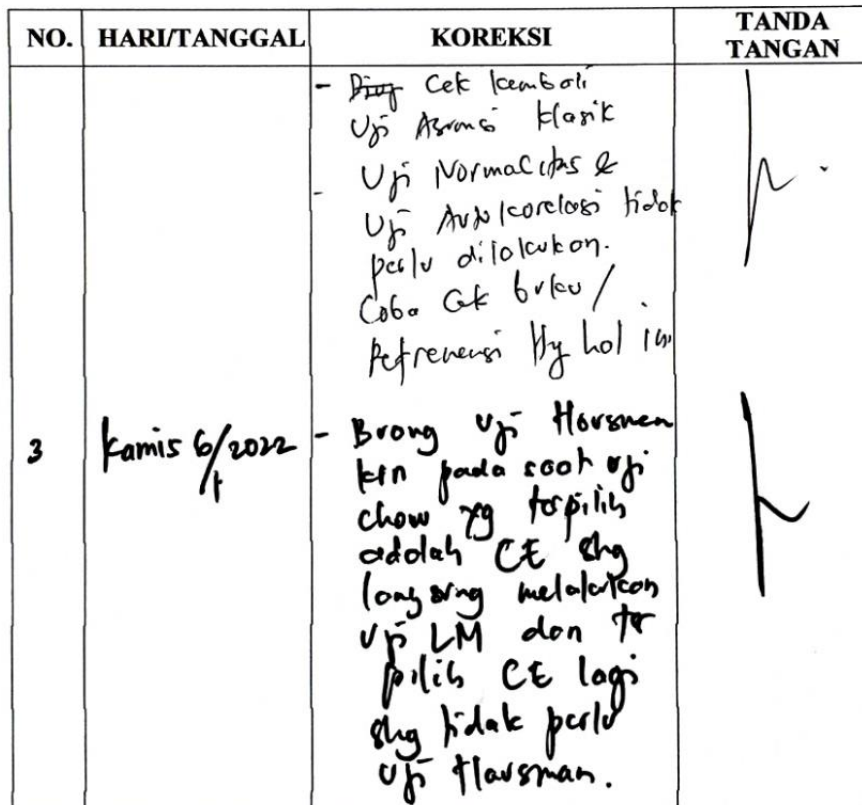 NO. HARI/TANGGAL KOREKSI TANDA TANGAN
- Cek kembali
Uji Asumsi klasik
- Uji Normalitas &
Uji Autokorelasi tidak
perlu dilakukan.
Coba Cek buku/
Refrenensi Hg hal ini
3 Kamis 6/1 2022 - Buang Uji Hausman
krn pada saat uji
chow yg terpilih
adalah CE shg
langsung melakukan
uji LM dan ter
pilih CE lagi
shg tidak perlu
uji Hausman.